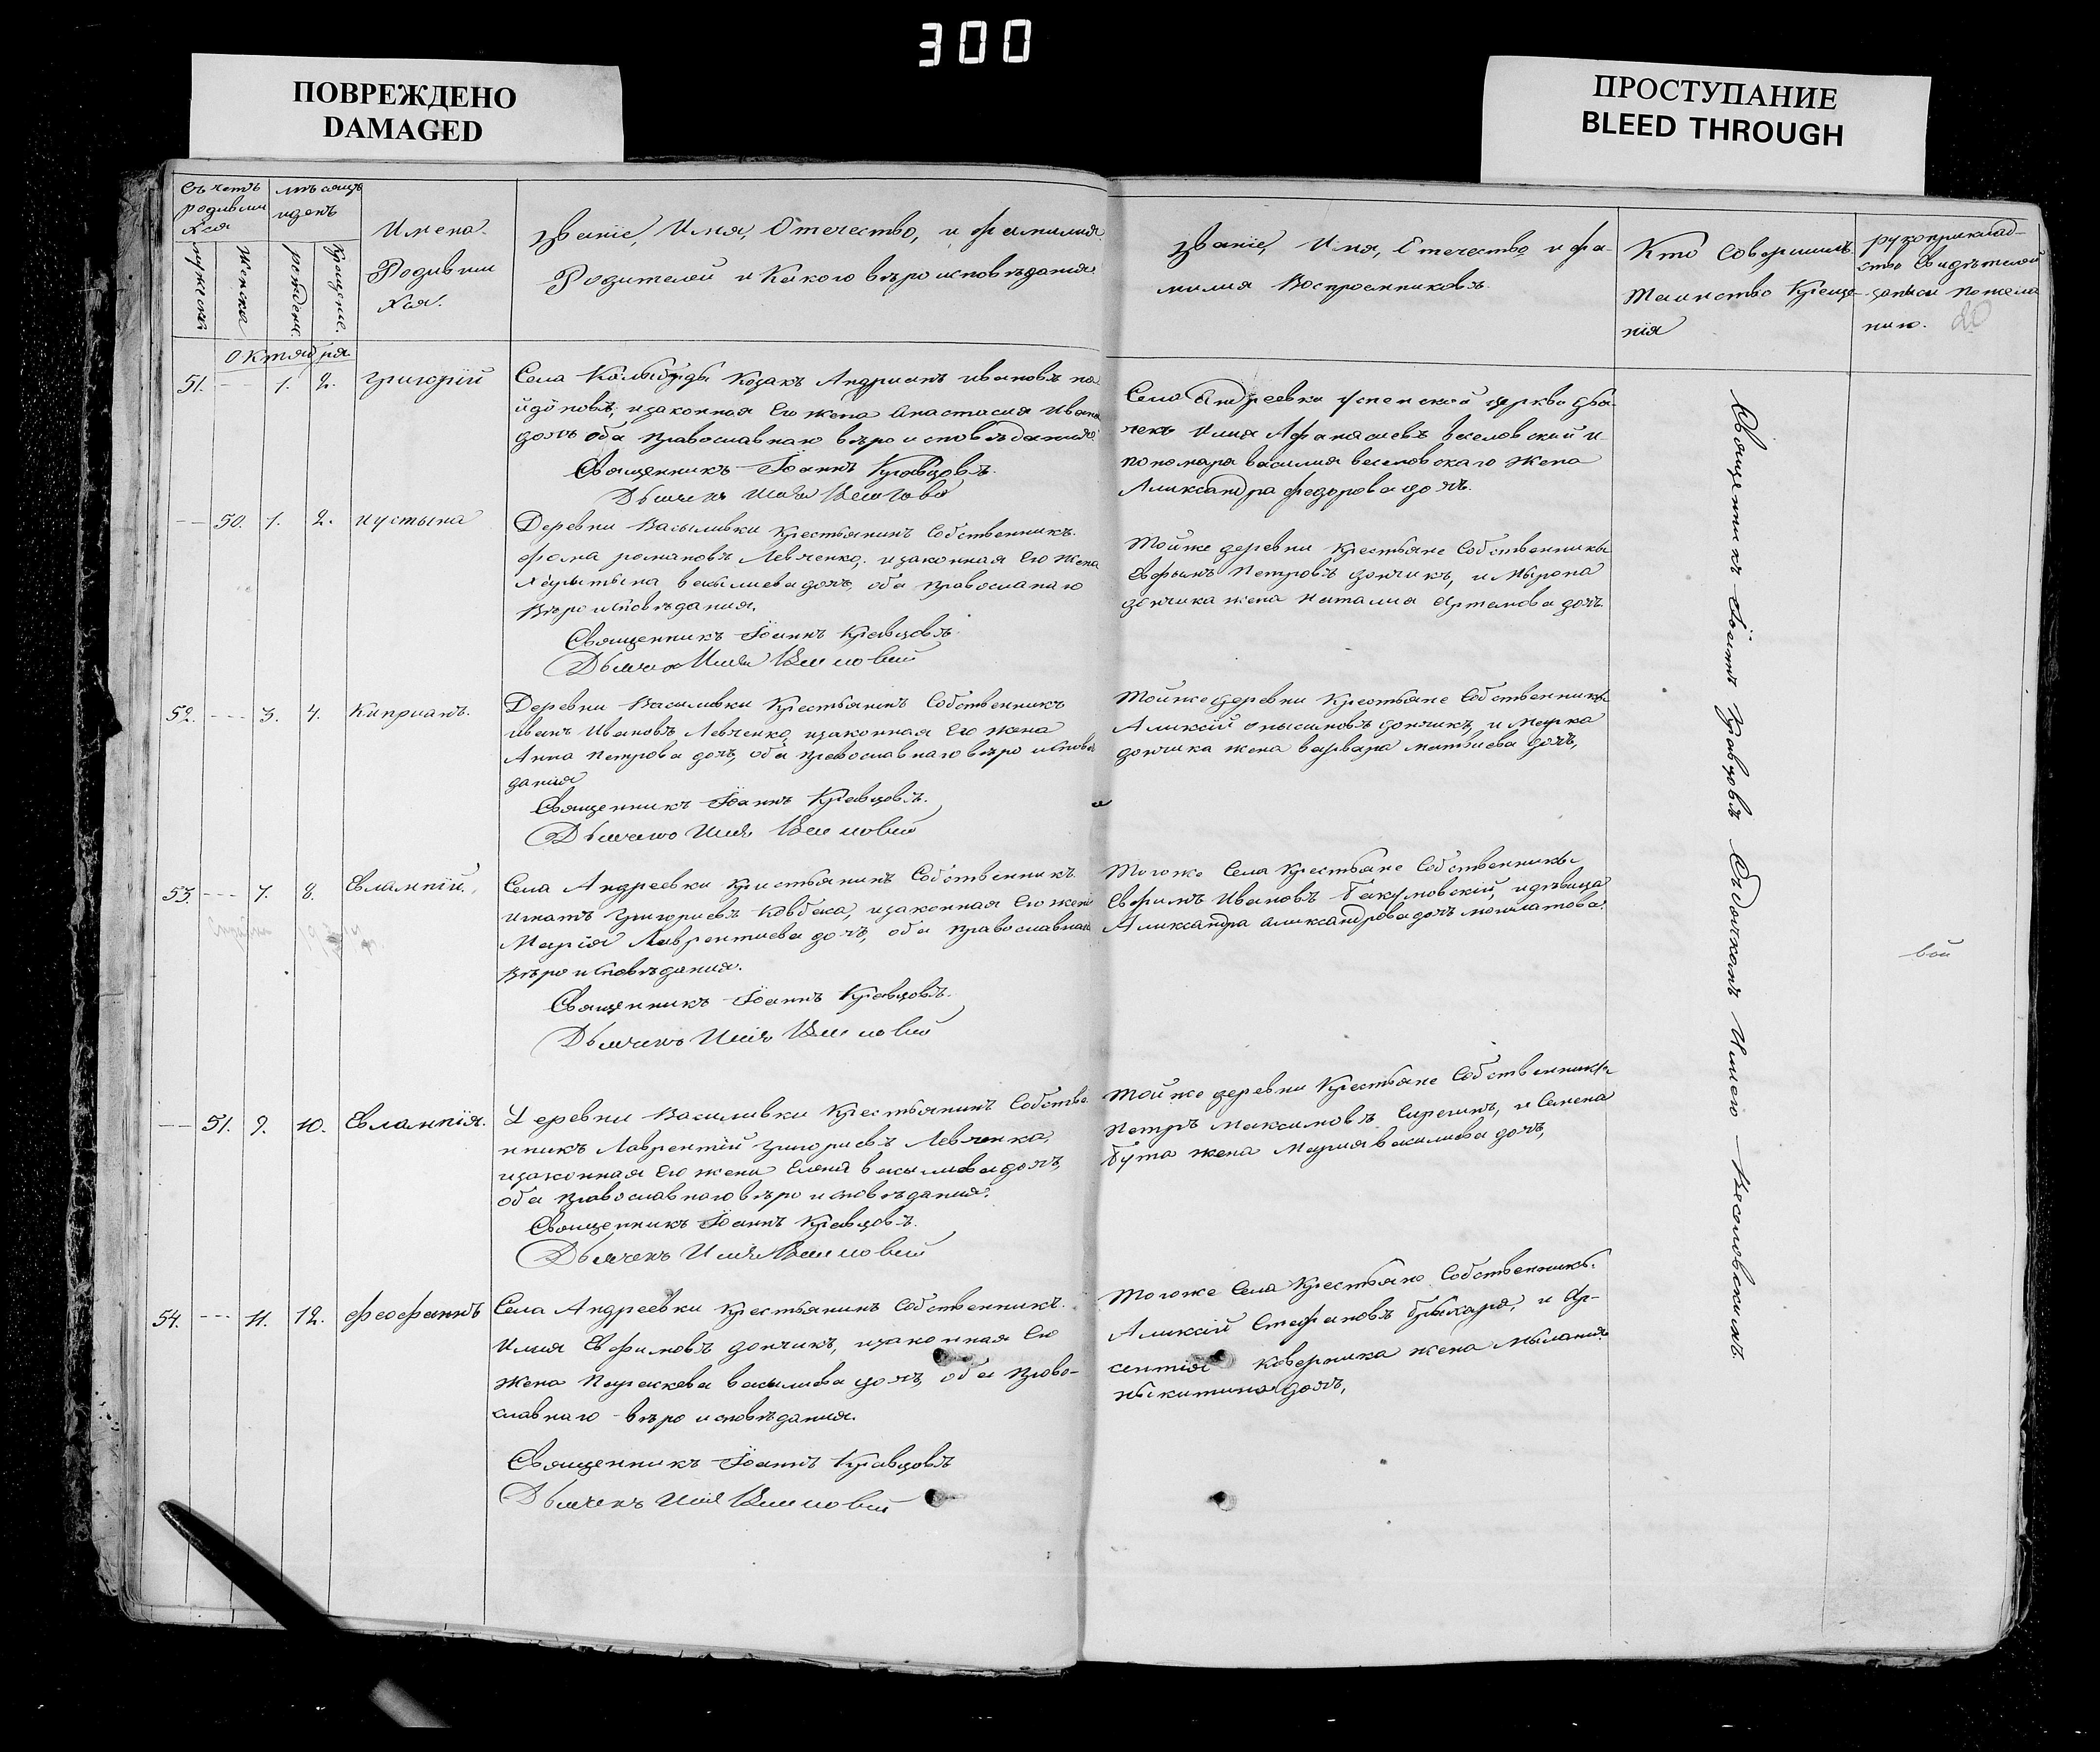 300
ПОВРЕЖДЕНО
DAMAGED
ПРОСТУПАНИЕ
BLEED THROUGH
Съчетъ
родивши
хся
мужеска
женска
мѣсяцъ
иденъ
рожден.
Крещение.
Имена.
Родивши
хся.
Званіе, Имя, Отечество, и фамилия
Родителей и Какого вѣроисповѣдания
Званіе, Имя, Отечество и фа-
милия Воспроемниковъ.
Кто Совершилъ
Таинство Креще-
нія
рукоприклад-
ство Свидѣтелей
записи пожела
нию. 20
Октября.
51. 1. 2. Григорій
Села Козакъ Андрианъ Ивановъ
изаконная Его жена Анастасия Ивано
дочъ оба Православнаго вѣроисповѣдания
Священникъ Іоаннъ Кравцовъ.
Дьячекъ Илия
Села Андреевки Успенской церкви дья-
чекъ Илия Афанасиевъ Веселовский и
пономаря василия веселовскаго жена
Александра федорова дочъ.
50. 1. 2. иустына
Деревни Васыливки Крестьянинъ Собственникъ.
фома романовъ Левченко, изаконная Его жена
васылиева дочъ, оба православнаго
Вѣроисповѣдания.
Священникъ Іоаннъ Кравцовъ.
Дьячекъ Илия
Тойже деревни Крестьяне Собственники
Евфымъ Петровъ дончикъ, и Мырона
дончика жена Наталия Артемова дочъ.
52. 3. 4. Киприанъ.
Деревни Васыливки Крестьянинъ Собственникъ
иванъ Ивановъ Левченко, изаконная Его жена
Анна Петрова дочъ, оба Православнаго вѣроисповѣ
дания
Священникъ Іоаннъ Кравцовъ.
Дьячекъ Илия
Тойже деревни Крестьяне Собственники
Аликсій онысимовъ дончикъ, и Марка
дончика жена варвара матвиева дочъ,
53. 7. 8. Евлампій.
Села Андреевки Кристьянинъ Собственникъ.
Игнатъ Григориевъ Ковбаса, изаконная Его жена
Марія Лаврентиева дочъ, оба православнаго
Вѣроисповѣдания.
Священникъ Іоаннъ Кравцовъ.
Дьячекъ Илия
Тогоже Села Крестьяне Собственники
Ефимъ Ивановъ Бакумовскій, идѣвица
Александра александрова дочъ
вой
51. 9. 10. Евлампія.
Деревни Василивки Крестьянинъ Собстве
нникъ Лаврентій Григориевъ Левченка,
изаконная Его жена Елена васылиева дочъ,
оба Православнаго вѣроисповѣдания.
Священникъ Іоаннъ Кравцовъ.
Дьячекъ Илия
Тойже деревни Крестьяне Собственники
Петръ Максимовъ и Семена
Бута жена Мария василиева дочъ,
54. 11. 12. феофанъ
Села Андреевки Крестьянинъ Собственникъ.
Илия Евфимовъ дончикъ, изаконная Его
Жена Параскева васылиева дочъ, оба Право-
славнаго вѣроисповѣдания.
Священникъ Іоаннъ Кравцовъ
Дьячекъ Илия
Тогоже Села Крестьяне Собственникы.
Аликсій Стефановъ и Ар-
сентія Каверника жена Мылания
Ныкитина дочъ,
Священникъ Іоаннъ Кравцовъ Съдьячкомъ Илиею Веселовскимъ.